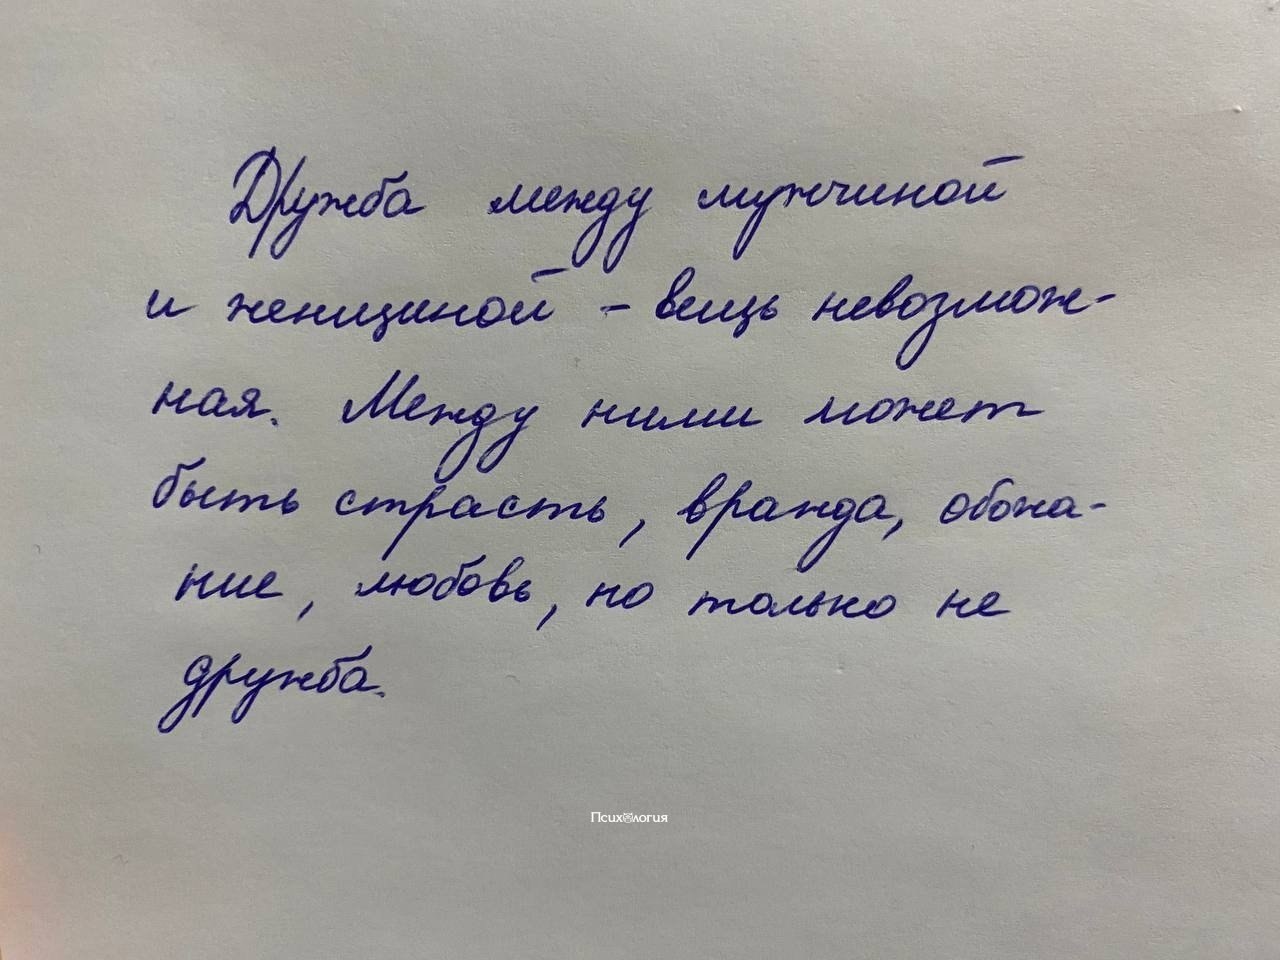 Дружба между мужчиной
и женщиной - вещь невозмож-
ная. Между ними может
быть страсть, вражда, обожа-
ние, любовь, но только не
дружба.
Психология